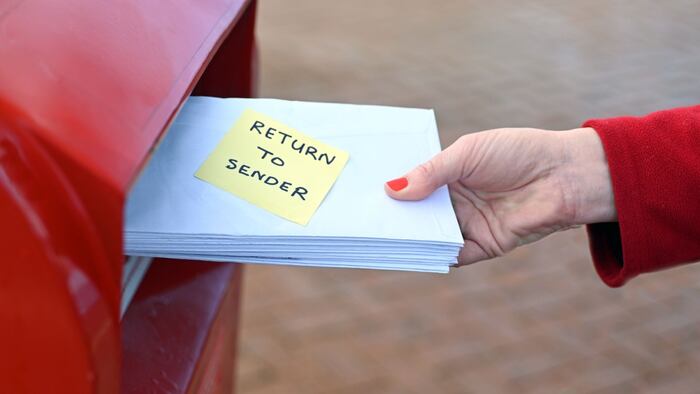 RETURN
TO
SENDER